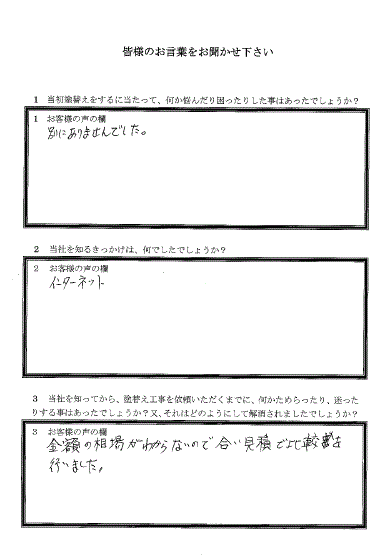 皆様のお言葉をお聞かせ下さい
1 当初塗替えをするに当たって、何か悩んだり困ったりした事はあったでしょうか？
1 お客様の声の欄
別にありませんでした。
2 当社を知るきっかけは、何でしたでしょうか？
2 お客様の声の欄
インターネット
3 当社を知ってから、塗替え工事を依頼いただくまでに、何かためらったり、迷った
りする事はあったでしょうか？又、それはどのようにして解消されましたでしょうか？
3 お客様の声の欄
金額の相場がわからないので合い見積で比較を
行いました。